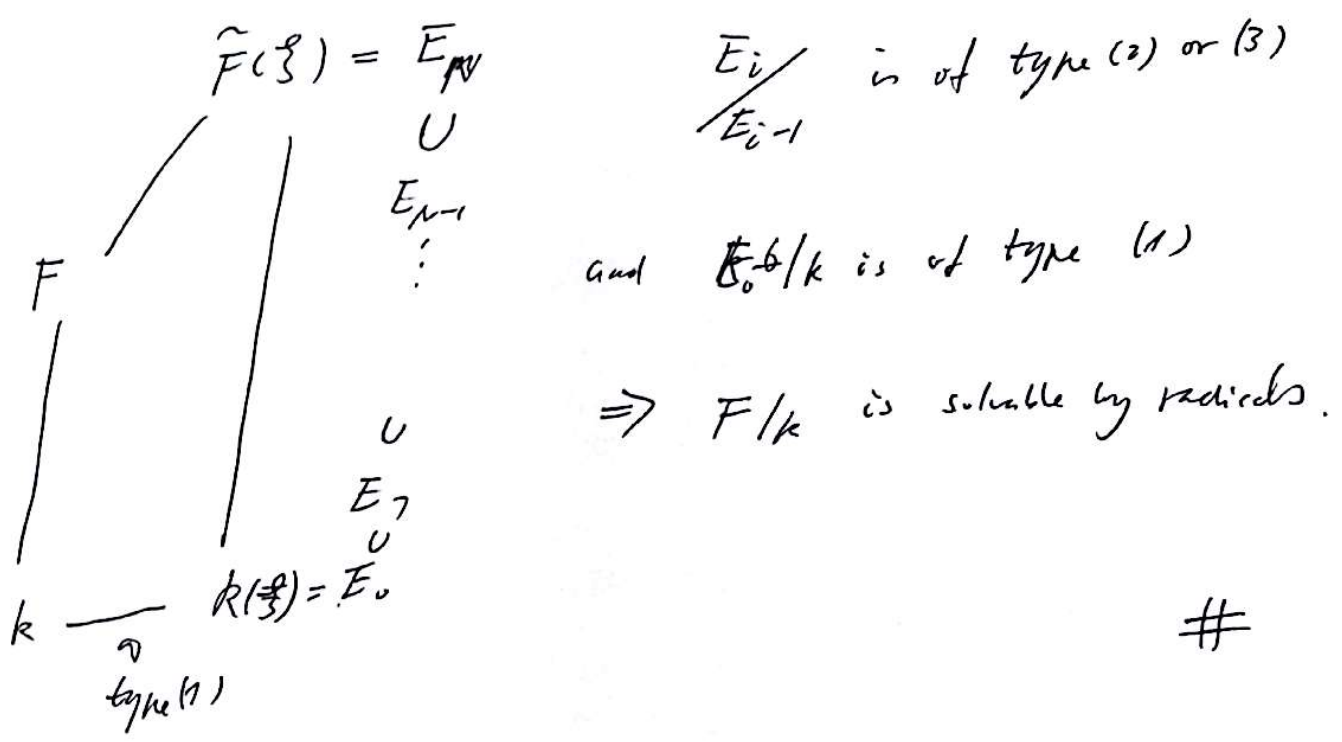 F̃(ξ) = E_N
∪
E_{N-1}
⋮
∪
E_1
∪
k(ξ) = E_0
F
k
type (1)
E_i / E_{i-1} is of type (2) or (3)
and E_0/k is of type (1)
⇒ F/k is solvable by radicals.
#